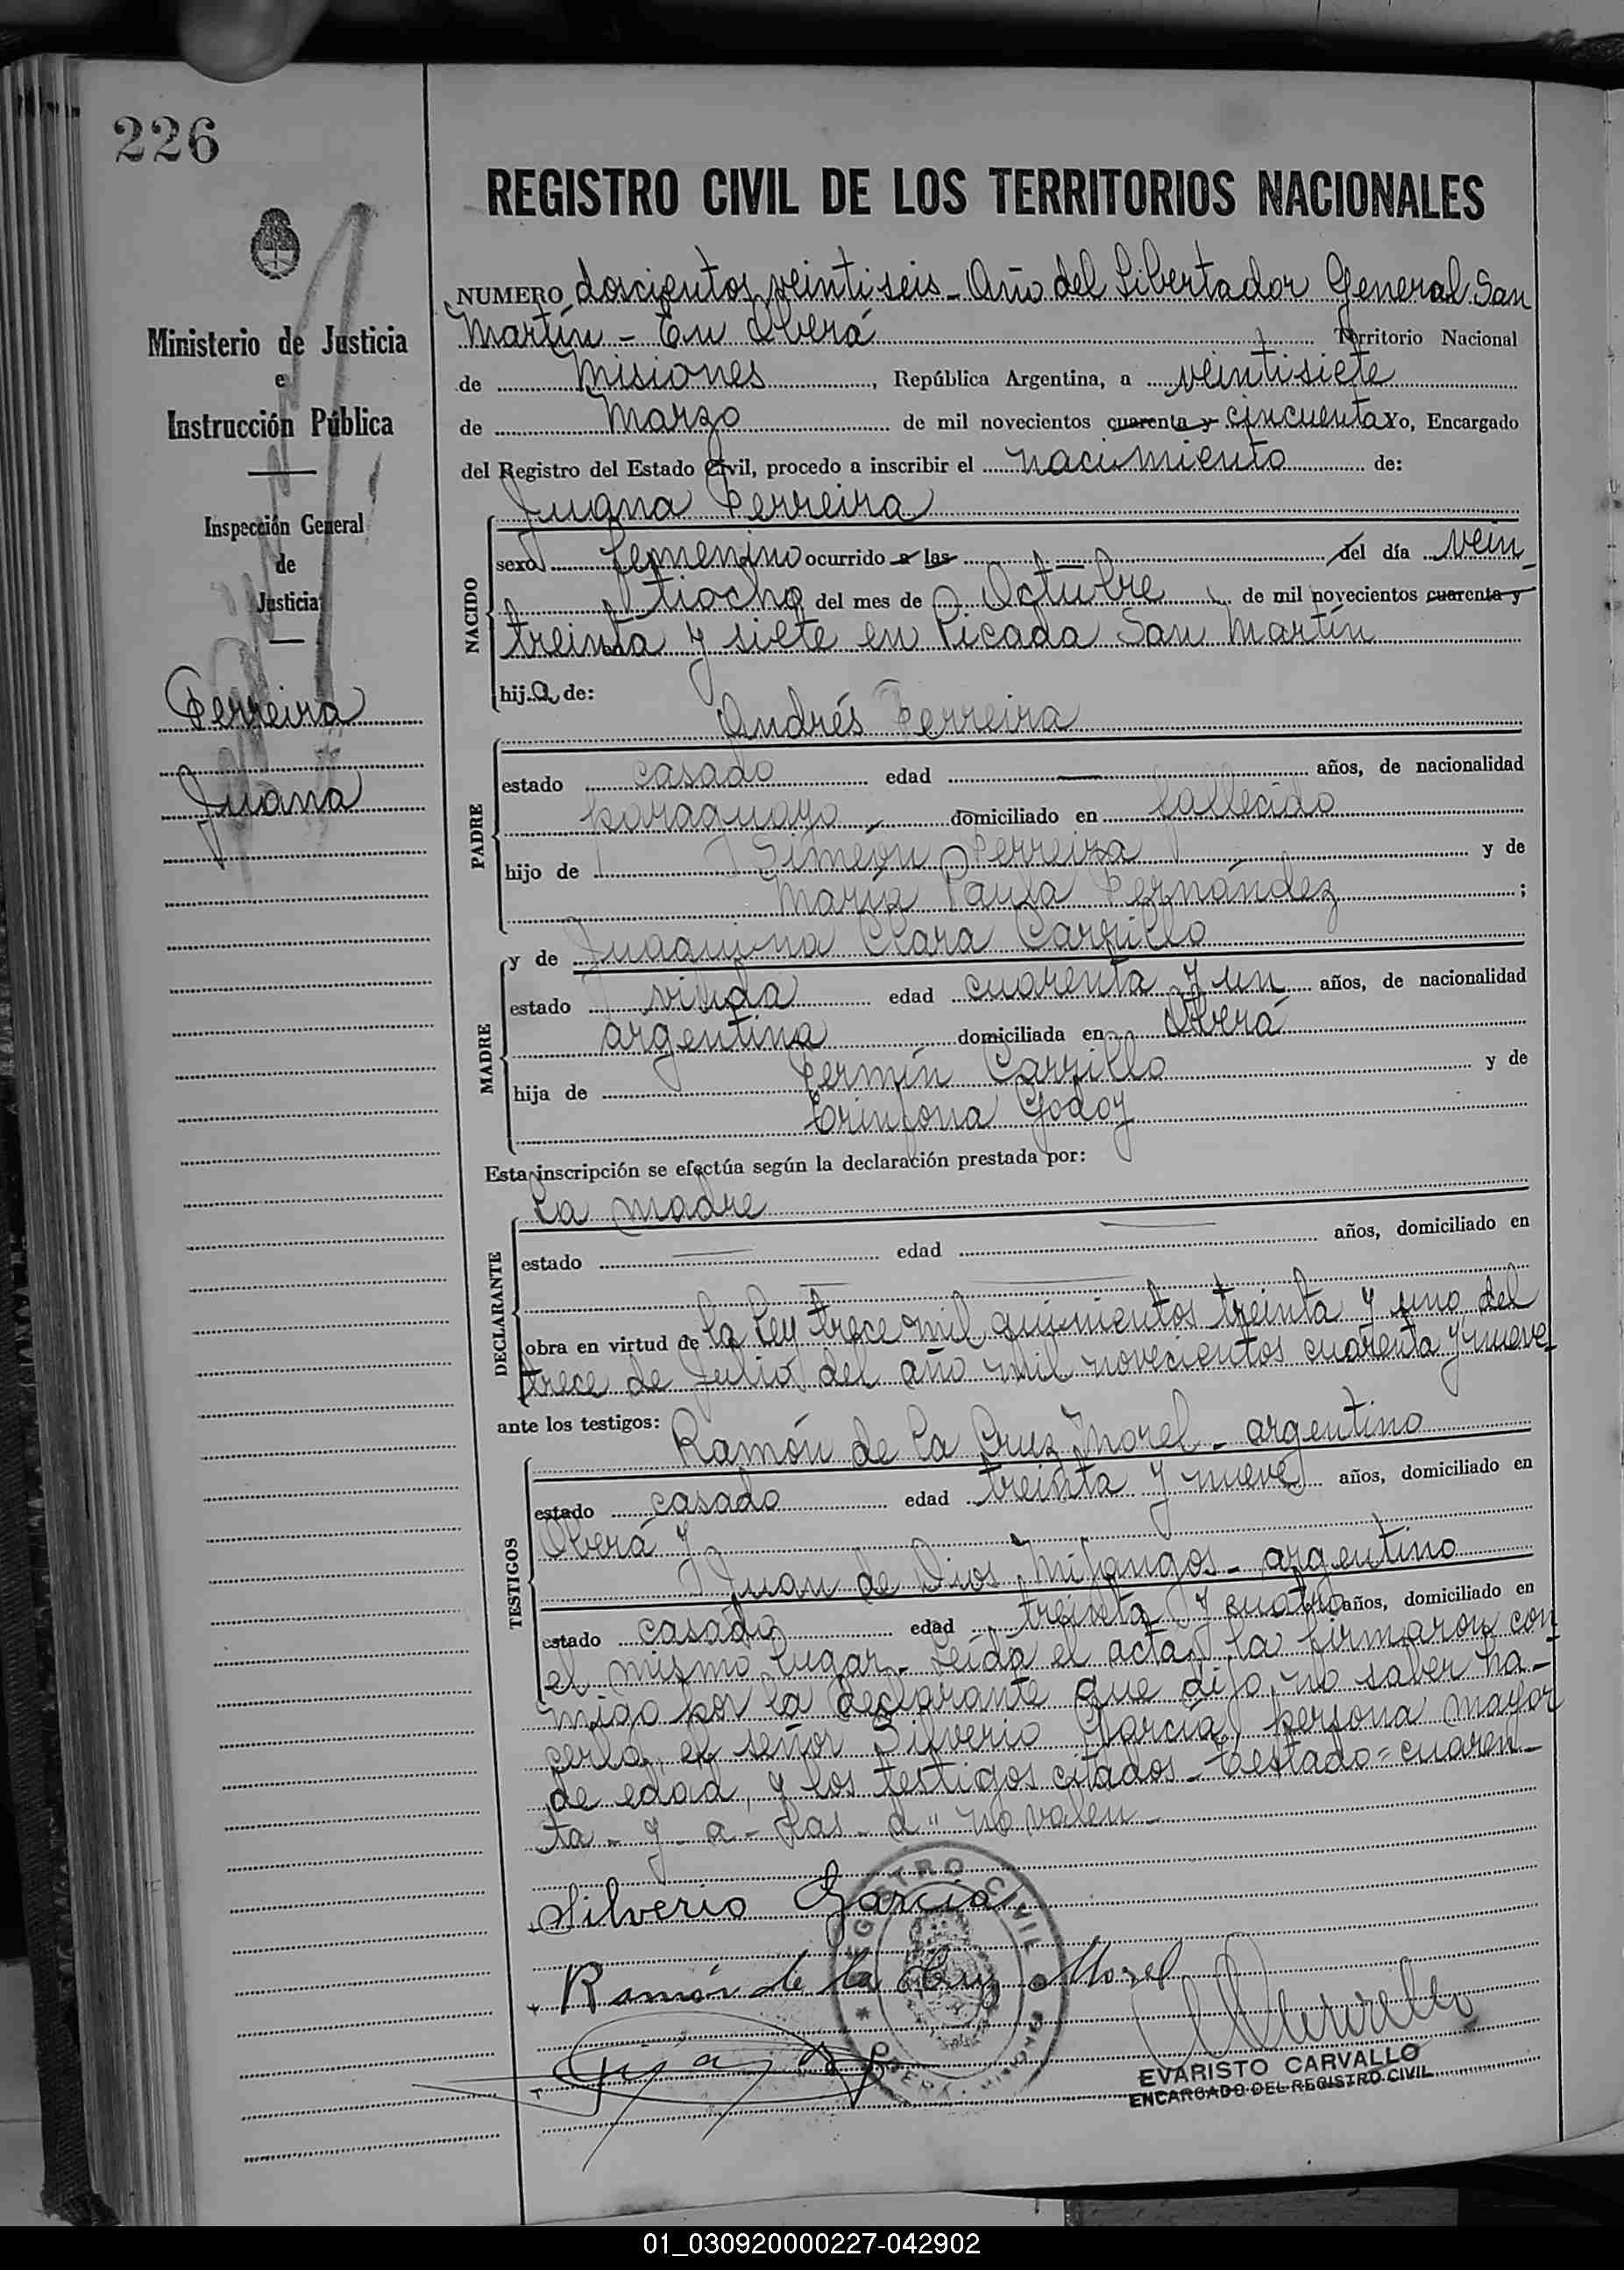 226
REGISTRO CIVIL DE LOS TERRITORIOS NACIONALES
Ministerio de Justicia
e
Instrucción Pública
Inspección General
de
Justicia
Ferreira
Juana
NUMERO doscientos veintiseis - Año del Libertador General San
Martín - En Oberá Territorio Nacional
de Misiones, República Argentina, a veintisiete
de Marzo de mil novecientos cuarenta y cincuenta Yo, Encargado
del Registro del Estado Civil, procedo a inscribir el nacimiento de:
Juana Ferreira
NACIDO
sexo femenino ocurrido a las del día vein
tiocho del mes de Octubre de mil novecientos cuarenta y
treinta y siete en Picada San Martín
hija de:
Andrés Ferreira
PADRE
estado casado edad años, de nacionalidad
paraguayo domiciliado en fallecido
hijo de Simeón Ferreira y de
María Paula Fernández ;
MADRE
y de Juaquina Clara Carrillo
estado viuda edad cuarenta y un años, de nacionalidad
argentina domiciliada en Oberá
hija de Fermín Carrillo y de
Trinfona Godoy
Esta inscripción se efectúa según la declaración prestada por:
La madre
DECLARANTE
estado edad años, domiciliado en
obra en virtud de la Ley trece mil quinientos treinta y uno del
trece de Julio del año mil novecientos cuarenta y nueve-
ante los testigos:
Ramón de la Cruz Morel - argentino
TESTIGOS
estado casado edad treinta y nueve años, domiciliado en
Oberá y
Juan de Dios Milangos - argentino
estado casado edad treinta y cuatro años, domiciliado en
el mismo lugar - Leída el acta, la firmaron con
migo por la declarante que dijo no saber ha-
cerlo, el señor Silverio García, persona mayor
de edad, y los testigos citados - Testado = cuaren-
ta - y - a - las - d" no valen -
Silverio García
Ramón de la Cruz Morel
REGISTRO CIVIL
OBERA
EVARISTO CARVALLO
ENCARGADO DEL REGISTRO CIVIL
01_030920000227-042902